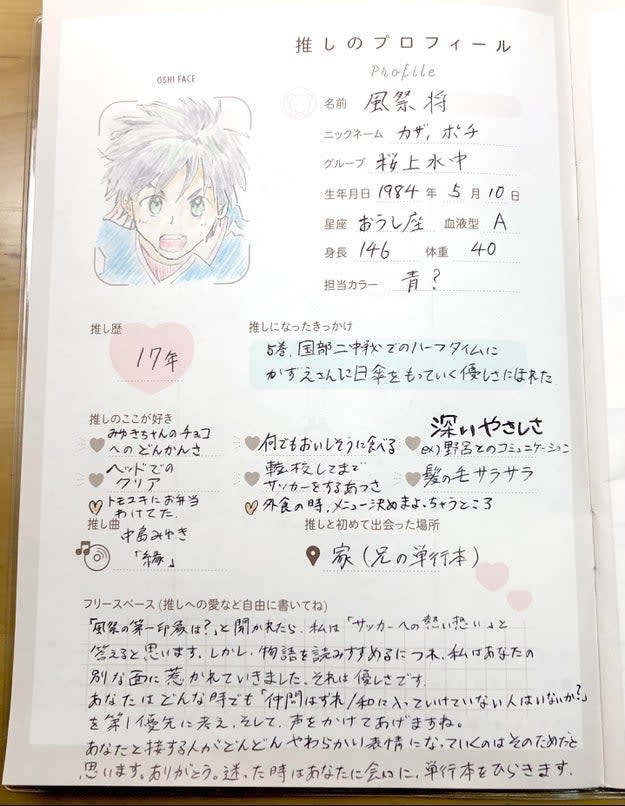 推しのプロフィール
Profile
OSHI FACE
名前 風祭将
ニックネーム カザ, ポチ
グループ 桜上水中
生年月日 1984 年 5 月 10 日
星座 おうし座 血液型 A
身長 146 体重 40
担当カラー 青?
推し歴
17年
推しになったきっかけ
5巻、国部二中戦でのハーフタイムに
かずえさんに日傘をもっていく優しさにほれた
推しのここが好き
みゆきちゃんのチョコ
へのどんかんさ
何でもおいしそうに食べる
深いやさしさ
ex)野呂とのコミュニケーション
ヘッドでの
クリア
転校してまで
サッカーをするあつさ
髪の毛サラサラ
トモユキにお弁当
わけてた
外食の時、メニュー決めまよっちゃうところ
推し曲
中島みゆき
「縁」
推しと初めて出会った場所
家(兄の単行本)
フリースペース(推しへの愛など自由に書いてね)
「風祭の第一印象は?」と聞かれたら、私は「サッカーへの熱い想い」と
答えると思います。しかし、物語を読みすすめるにつれ、私はあなたの
別な面に惹かれていきました。それは優しさです。
あなたはどんな時でも「仲間はずれ/和に入っていけていない人はいないか?」
を第1優先に考え、そして、声をかけてあげますね。
あなたと接する人がどんどんやわらかい表情になっていくのはそのためだと
思います。ありがとう。迷った時はあなたに会いに、単行本をひらきます。